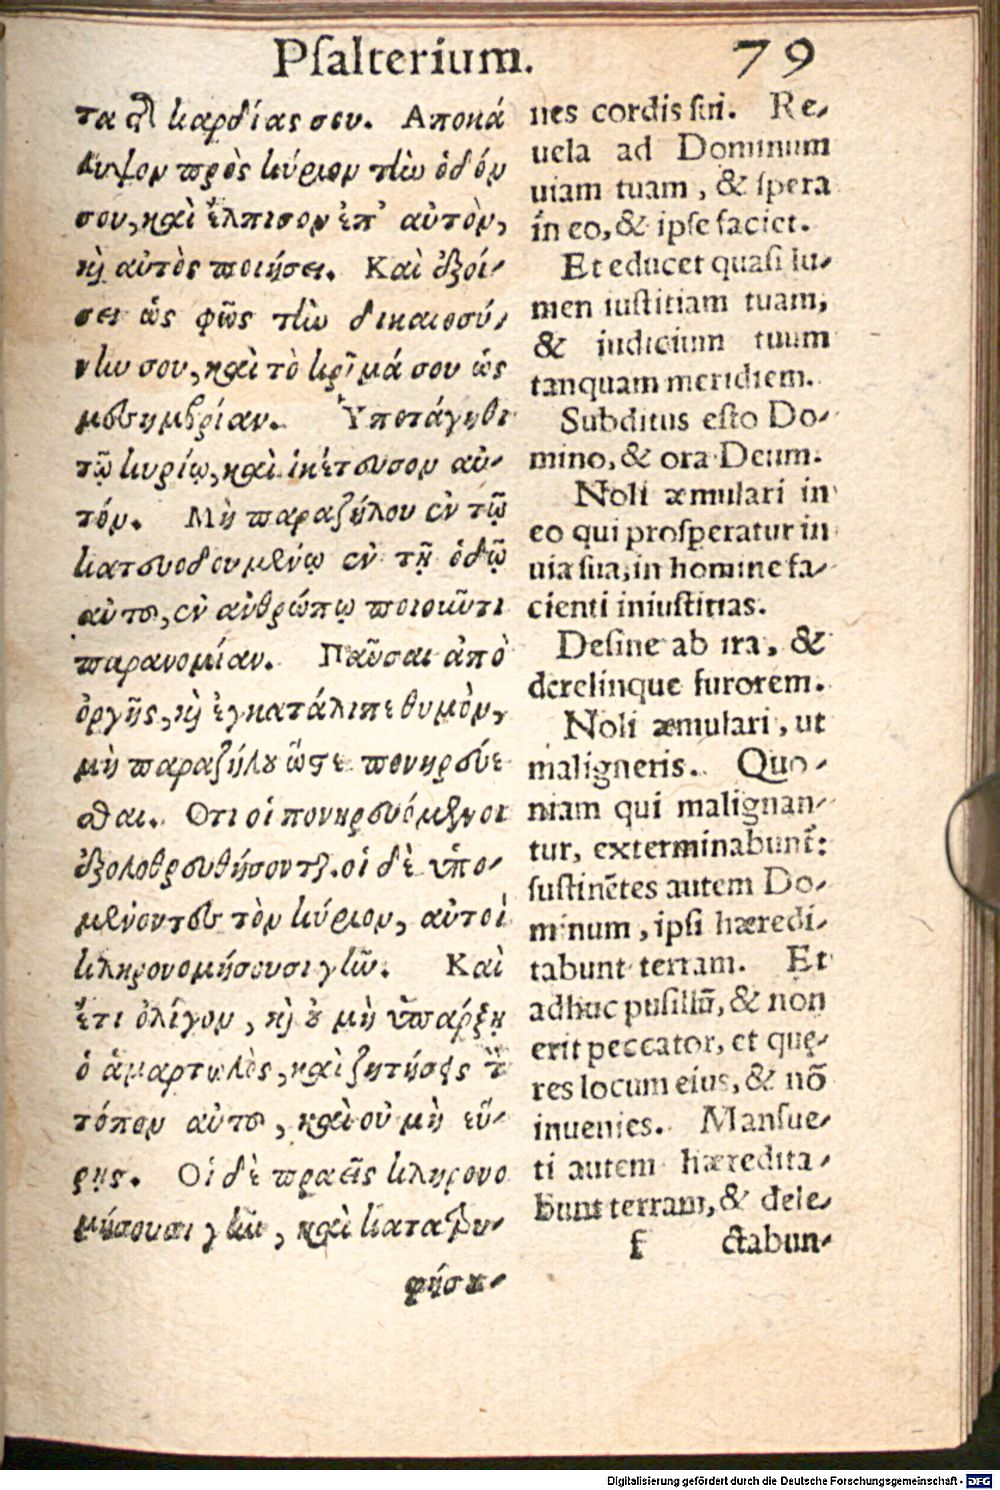 Pſalterium. 79
τα τῆς καρδίας σου. Αποκά
λυψον πρὸς κύριον τὴν ὁδόν
σου, καὶ ἔλπισον ἐπ' αὐτὸν,
καὶ αὐτὸς ποιήσει. Καὶ ἐξοί-
σει ὡς φῶς τὴν δικαιοσύ-
νην σου, καὶ τὸ κρῖμά σου ὡς
μεσημβρίαν. Ὑποτάγηθι
τῷ κυρίῳ, καὶ ἱκέτευσον αὐ-
τόν. Μὴ παραζήλου ἐν τῷ
κατευοδουμένῳ ἐν τῇ ὁδῷ
αὐτοῦ, ἐν ἀνθρώπῳ ποιοῦντι
παρανομίαν. Παῦσαι ἀπὸ
ὀργῆς, καὶ ἐγκατάλιπε θυμὸν,
μὴ παραζήλου ὥστε πονηρεύε
σθαι. Οτι οἱ πονηρευόμενοι
ἐξολοθρευθήσονται. οἱ δὲ ὑπο-
μένοντες τὸν κύριον, αὐτοὶ
κληρονομήσουσι γῆν. Καὶ
ἔτι ὀλίγον, καὶ οὐ μὴ ὑπάρξῃ
ὁ ἁμαρτωλὸς, καὶ ζητήσεις τὸν
τόπον αὐτοῦ, καὶ οὐ μὴ εὕ-
ρῃς. Οἱ δὲ πραεῖς κληρονο
μήσουσι γῆν, καὶ κατατρυ-
φήσου-
nes cordis tui. Re-
uela ad Dominum
uiam tuam, & ſpera
in eo, & ipſe faciet.
Et educet quaſi lu-
men iuſtitiam tuam,
& iudicium tuum
tanquam meridiem.
Subditus eſto Do-
mino, & ora Deum.
Noli æmulari in
eo qui proſperatur in
uia ſua, in homine fa-
cienti iniuſtitias.
Deſine ab ira, &
derelinque furorem.
Noli æmulari, ut
maligneris. Quo-
niam qui malignan-
tur, exterminabunt̃:
ſuſtinẽtes autem Do-
minum, ipſi hæredi-
tabunt terram. Et
adhuc puſillũ, & non
erit peccator, et quę-
res locum eius, & nõ
inuenies. Manſue-
ti autem hæredita-
bunt terram, & dele-
f ctabun-
Digitalisierung gefördert durch die Deutsche Forschungsgemeinschaft - DFG